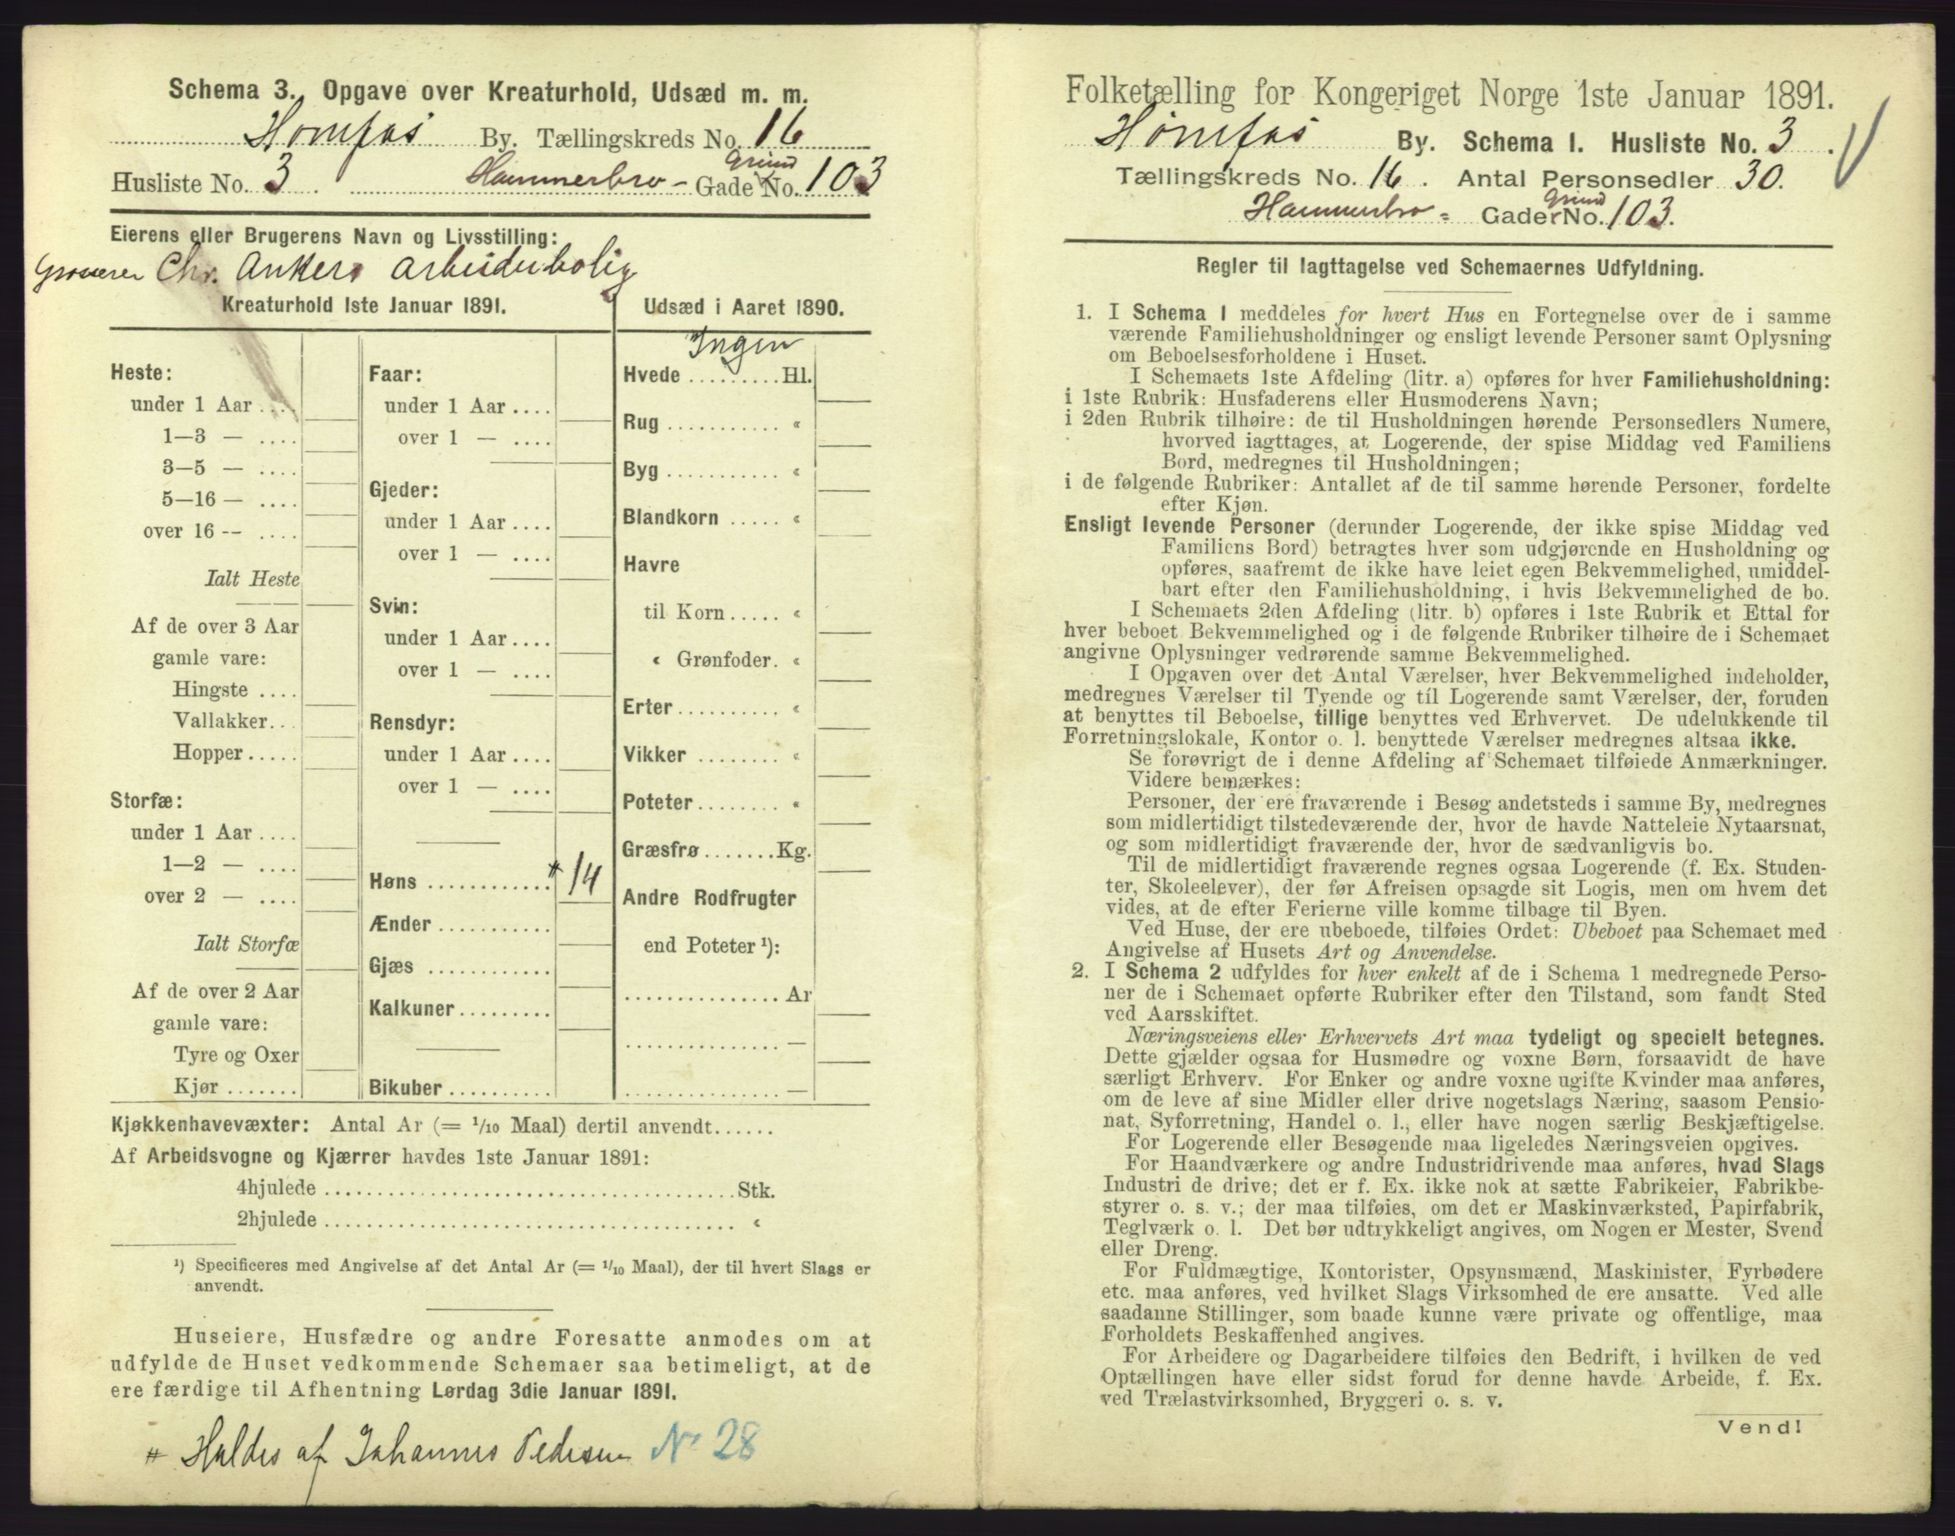 Schema 3. Opgave over Kreaturhold, Udsæd m. m.
Hønefos By. Tællingskreds No. 16
Husliste No. 3 Hammerbro- Gade Grund No. 103
Eierens eller Brugerens Navn og Livsstilling:
Chr. Ankers Arbeiderbolig
Kreaturhold 1ste Januar 1891.
Heste:
under 1 Aar ....
1—3 — ....
3—5 — ....
5—16 — ....
over 16 -- ....
Ialt Heste
Af de over 3 Aar
gamle vare:
Hingste ....
Vallakker...
Hopper.....
Storfæ:
under 1 Aar ....
1—2 — ....
over 2 — ....
Ialt Storfæ
Af de over 2 Aar
gamle vare:
Tyre og Oxer
Kjør .......
Faar:
under 1 Aar ....
over 1 — ....
Gjeder:
under 1 Aar ....
over 1 — ....
Svin:
under 1 Aar ....
over 1 — ....
Rensdyr:
under 1 Aar ....
over 1 — ....
Høns ............ * 14
Ænder ...........
Gjæs ............
Kalkuner.........
Bikuber..........
Udsæd i Aaret 1890.
Ingen
Hvede .........Hl.
Rug ........... «
Byg ........... «
Blandkorn ..... «
Havre
til Korn..... «
« Grønfoder. «
Erter.......... «
Vikker ........ «
Poteter........ «
Græsfrø.......Kg.
Andre Rodfrugter
end Poteter ¹):
............... Ar
............... —
............... —
Kjøkkenhavevæxter: Antal Ar (= 1/10 Maal) dertil anvendt......
Af Arbeidsvogne og Kjærrer havdes 1ste Januar 1891:
4hjulede ........................................Stk.
2hjulede ........................................ «
¹) Specificeres med Angivelse af det Antal Ar (= 1/10 Maal), der til hvert Slags er
anvendt.
Huseiere, Husfædre og andre Foresatte anmodes om at
udfylde de Huset vedkommende Schemaer saa betimeligt, at de
ere færdige til Afhentning Lørdag 3die Januar 1891.
* Holdes af Johannes Pedersen No 28
Folketælling for Kongeriget Norge 1ste Januar 1891.
Hønefos By. Schema I. Husliste No. 3.
Tællingskreds No. 16. Antal Personsedler 30.
Hammerbro- Gade Grund No. 103.
Regler til Iagttagelse ved Schemaernes Udfyldning.
1. I Schema I meddeles for hvert Hus en Fortegnelse over de i samme
værende Familiehusholdninger og ensligt levende Personer samt Oplysning
om Beboelsesforholdene i Huset.
I Schemaets 1ste Afdeling (litr. a) opføres for hver Familiehusholdning:
i 1ste Rubrik: Husfaderens eller Husmoderens Navn;
i 2den Rubrik tilhøire: de til Husholdningen hørende Personsedlers Numere,
hvorved iagttages, at Logerende, der spise Middag ved Familiens
Bord, medregnes til Husholdningen;
i de følgende Rubriker: Antallet af de til samme hørende Personer, fordelte
efter Kjøn.
Ensligt levende Personer (derunder Logerende, der ikke spise Middag ved
Familiens Bord) betragtes hver som udgjørende en Husholdning og
opføres, saafremt de ikke have leiet egen Bekvemmelighed, umiddel-
bart efter den Familiehusholdning, i hvis Bekvemmelighed de bo.
I Schemaets 2den Afdeling (litr. b) opføres i 1ste Rubrik et Ettal for
hver beboet Bekvemmelighed og i de følgende Rubriker tilhøire de i Schemaet
angivne Oplysninger vedrørende samme Bekvemmelighed.
I Opgaven over det Antal Værelser, hver Bekvemmelighed indeholder,
medregnes Værelser til Tyende og til Logerende samt Værelser, der, foruden
at benyttes til Beboelse, tillige benyttes ved Erhvervet. De udelukkende til
Forretningslokale, Kontor o. l. benyttede Værelser medregnes altsaa ikke.
Se forøvrigt de i denne Afdeling af Schemaet tilføiede Anmærkninger.
Videre bemærkes:
Personer, der ere fraværende i Besøg andetsteds i samme By, medregnes
som midlertidigt tilstedeværende der, hvor de havde Natteleie Nytaarsnat,
og som midlertidigt fraværende der, hvor de sædvanligvis bo.
Til de midlertidigt fraværende regnes ogsaa Logerende (f. Ex. Studen-
ter, Skoleelever), der før Afreisen opsagde sit Logis, men om hvem det
vides, at de efter Ferierne ville komme tilbage til Byen.
Ved Huse, der ere ubeboede, tilføies Ordet: Ubeboet paa Schemaet med
Angivelse af Husets Art og Anvendelse.
2. I Schema 2 udfyldes for hver enkelt af de i Schema 1 medregnede Perso-
ner de i Schemaet opførte Rubriker efter den Tilstand, som fandt Sted
ved Aarsskiftet.
Næringsveiens eller Erhvervets Art maa tydeligt og specielt betegnes.
Dette gjælder ogsaa for Husmødre og voxne Børn, forsaavidt de have
særligt Erhverv. For Enker og andre voxne ugifte Kvinder maa anføres,
om de leve af sine Midler eller drive nogetslags Næring, saasom Pensio-
nat, Syforretning, Handel o. l., eller have nogen særlig Beskjæftigelse.
For Logerende eller Besøgende maa ligeledes Næringsveien opgives.
For Haandværkere og andre Industridrivende maa anføres, hvad Slags
Industri de drive; det er f. Ex. ikke nok at sætte Fabrikeier, Fabrikbe-
styrer o. s. v.; der maa tilføies, om det er Maskinværksted, Papirfabrik,
Teglværk o. l. Det bør udtrykkeligt angives, om Nogen er Mester, Svend
eller Dreng.
For Fuldmægtige, Kontorister, Opsynsmænd, Maskinister, Fyrbødere
etc. maa anføres, ved hvilket Slags Virksomhed de ere ansatte. Ved alle
saadanne Stillinger, som baade kunne være private og offentlige, maa
Forholdets Beskaffenhed angives.
For Arbeidere og Dagarbeidere tilføies den Bedrift, i hvilken de ved
Optællingen have eller sidst forud for denne havde Arbeide, f. Ex.
ved Trælastvirksomhed, Bryggeri o. s. v.
Vend!